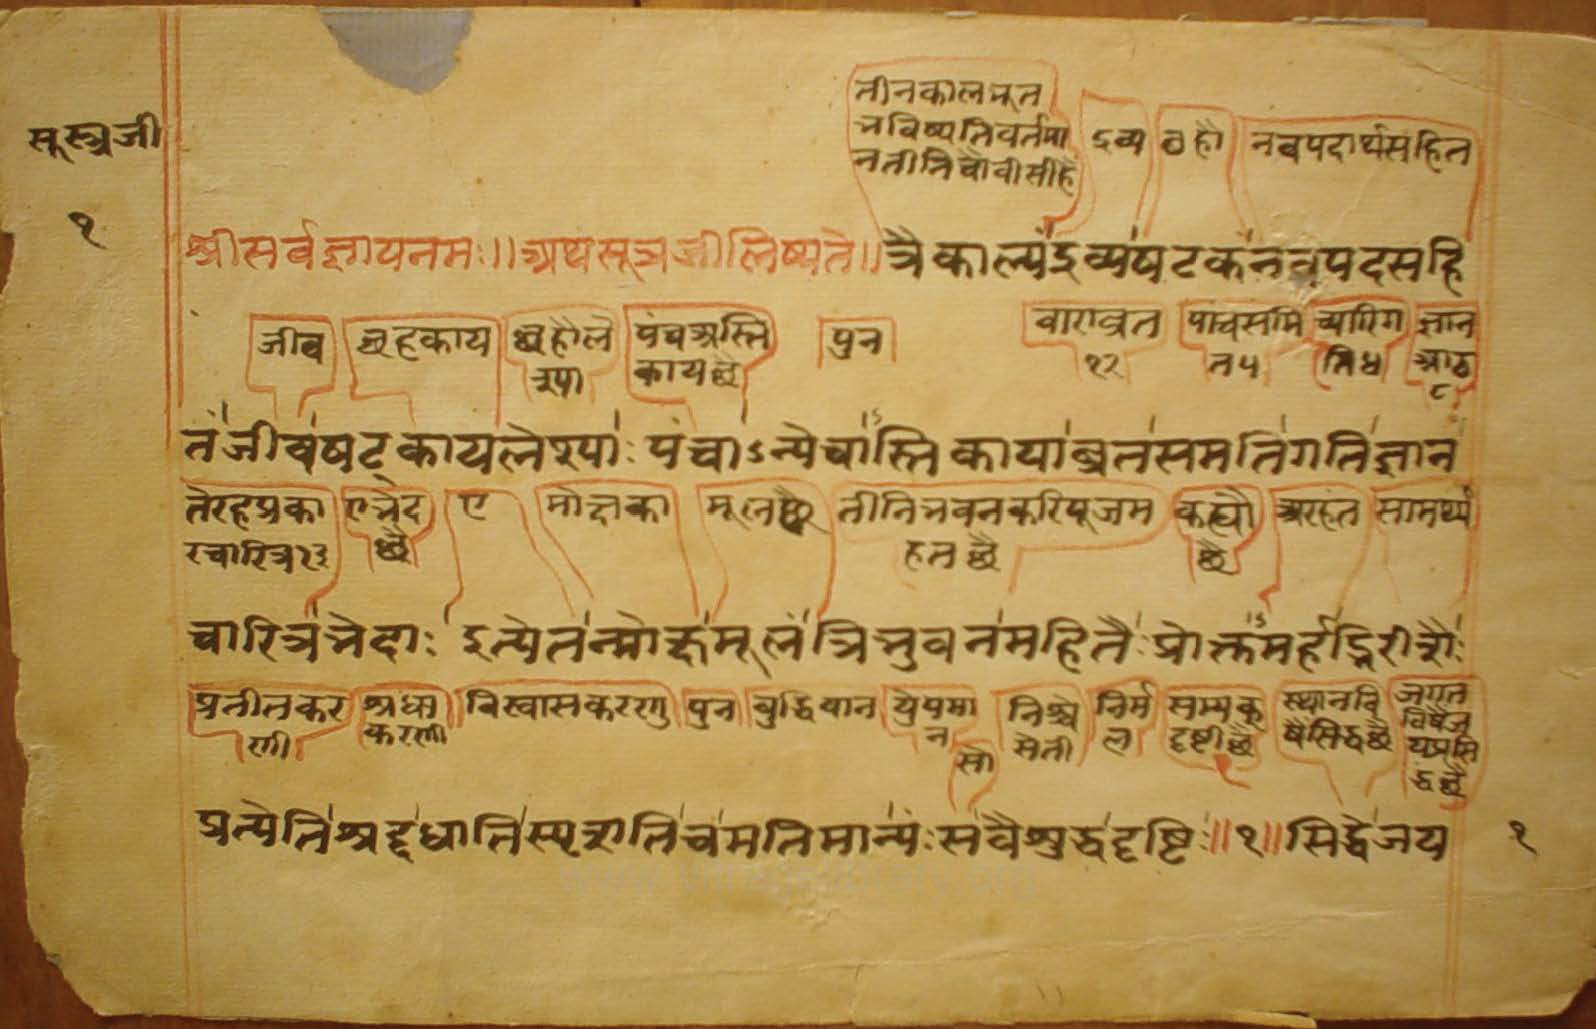 तीनकालभूत
भविष्यतिवर्तमा
नतीनिचौवीसीहै
द्रव्य
छहौ
नवपदार्थसहित
सूत्रजी
१
श्रीसर्वज्ञायनमः॥अथसूत्रजीलिष्यते॥त्रैकाल्यंद्रव्यषटकंनवपदसहि
जीव
छहकाय
छहौले
श्या
पंचअस्ति
कायछै
पुन
बाराव्रत
१२
पांचसमि
त५
च्यारिग
ति४
ज्ञान
आठ
८
तंजीवषट्कायलेश्याः पंचाऽन्येचास्तिकायाव्रतसमतिगतिज्ञान
तेरहप्रका
रचारित्र१३
एभेद
छै
ए
मोक्षका
मूलछै
तीनिभवनकरिपूजम
हतछै
कह्यौ
छै
अरहंत
सामर्थ्य
चारित्रभेदाः इत्येतन्मोक्षमूलंत्रिभुवनमहितैः प्रोक्तमर्हद्भिरीशैः
प्रतीतकर
णी
श्रधा
करणी
विस्वासकररणु
पुन
बुद्धिवान
पुन
सो
निश्चै
सेती
निर्म
ल
सम्यक
दृष्टीछै
स्थानवि
षैसिद्धछै
जगत
विषैज
यप्रसि
द्धछै
प्रत्येतिश्रद्दधातिस्पृशतिचमतिमान्यः सवैशुद्धदृष्टिः॥१॥सिद्धेजय
१